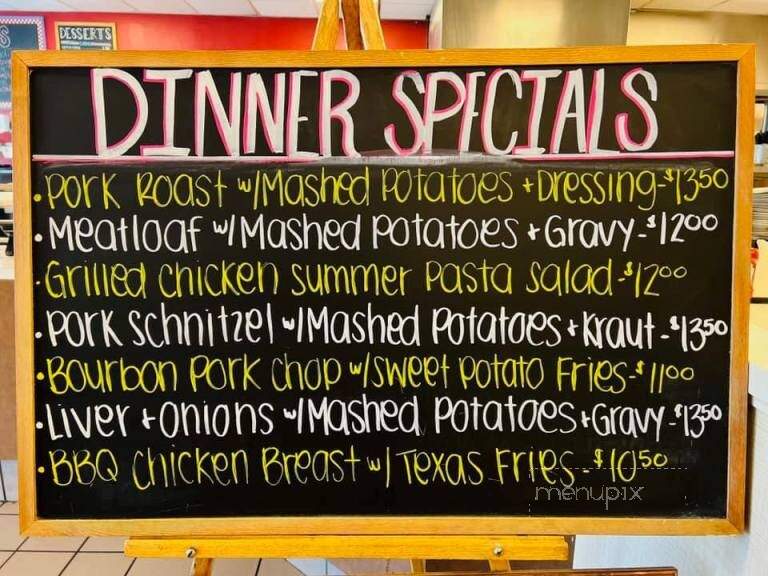 DESSERTS
DINNER SPECIALS
• Pork Roast w/Mashed Potatoes + Dressing - $13.50
• Meatloaf w/Mashed Potatoes + Gravy - $12.00
• Grilled Chicken Summer Pasta Salad - $12.00
• Pork Schnitzel w/Mashed Potatoes + Kraut - $13.50
• Bourbon Pork Chop w/Sweet Potato Fries - $11.00
• Liver + Onions w/Mashed Potatoes + Gravy - $13.50
• BBQ Chicken Breast w/ Texas Fries - $10.50
menupix